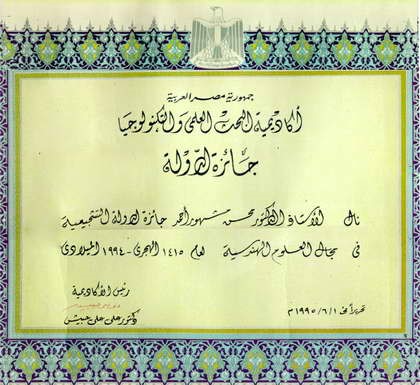 جمهورية مصر العربية
أكاديمية البحث العلمى والتكنولوجيا
جائزة الدولة
نال الأستاذ الدكتور محسن شهور أحمد جائزة الدولة التشجيعية
فى مجال العلوم الهندسية لعام ١٤١٥ الهجرى - ١٩٩٤ الميلادى
رئيس الأكاديمية
تحريراً فى ١ / ٦ / ١٩٩٥ م
دكتور على على حبيش